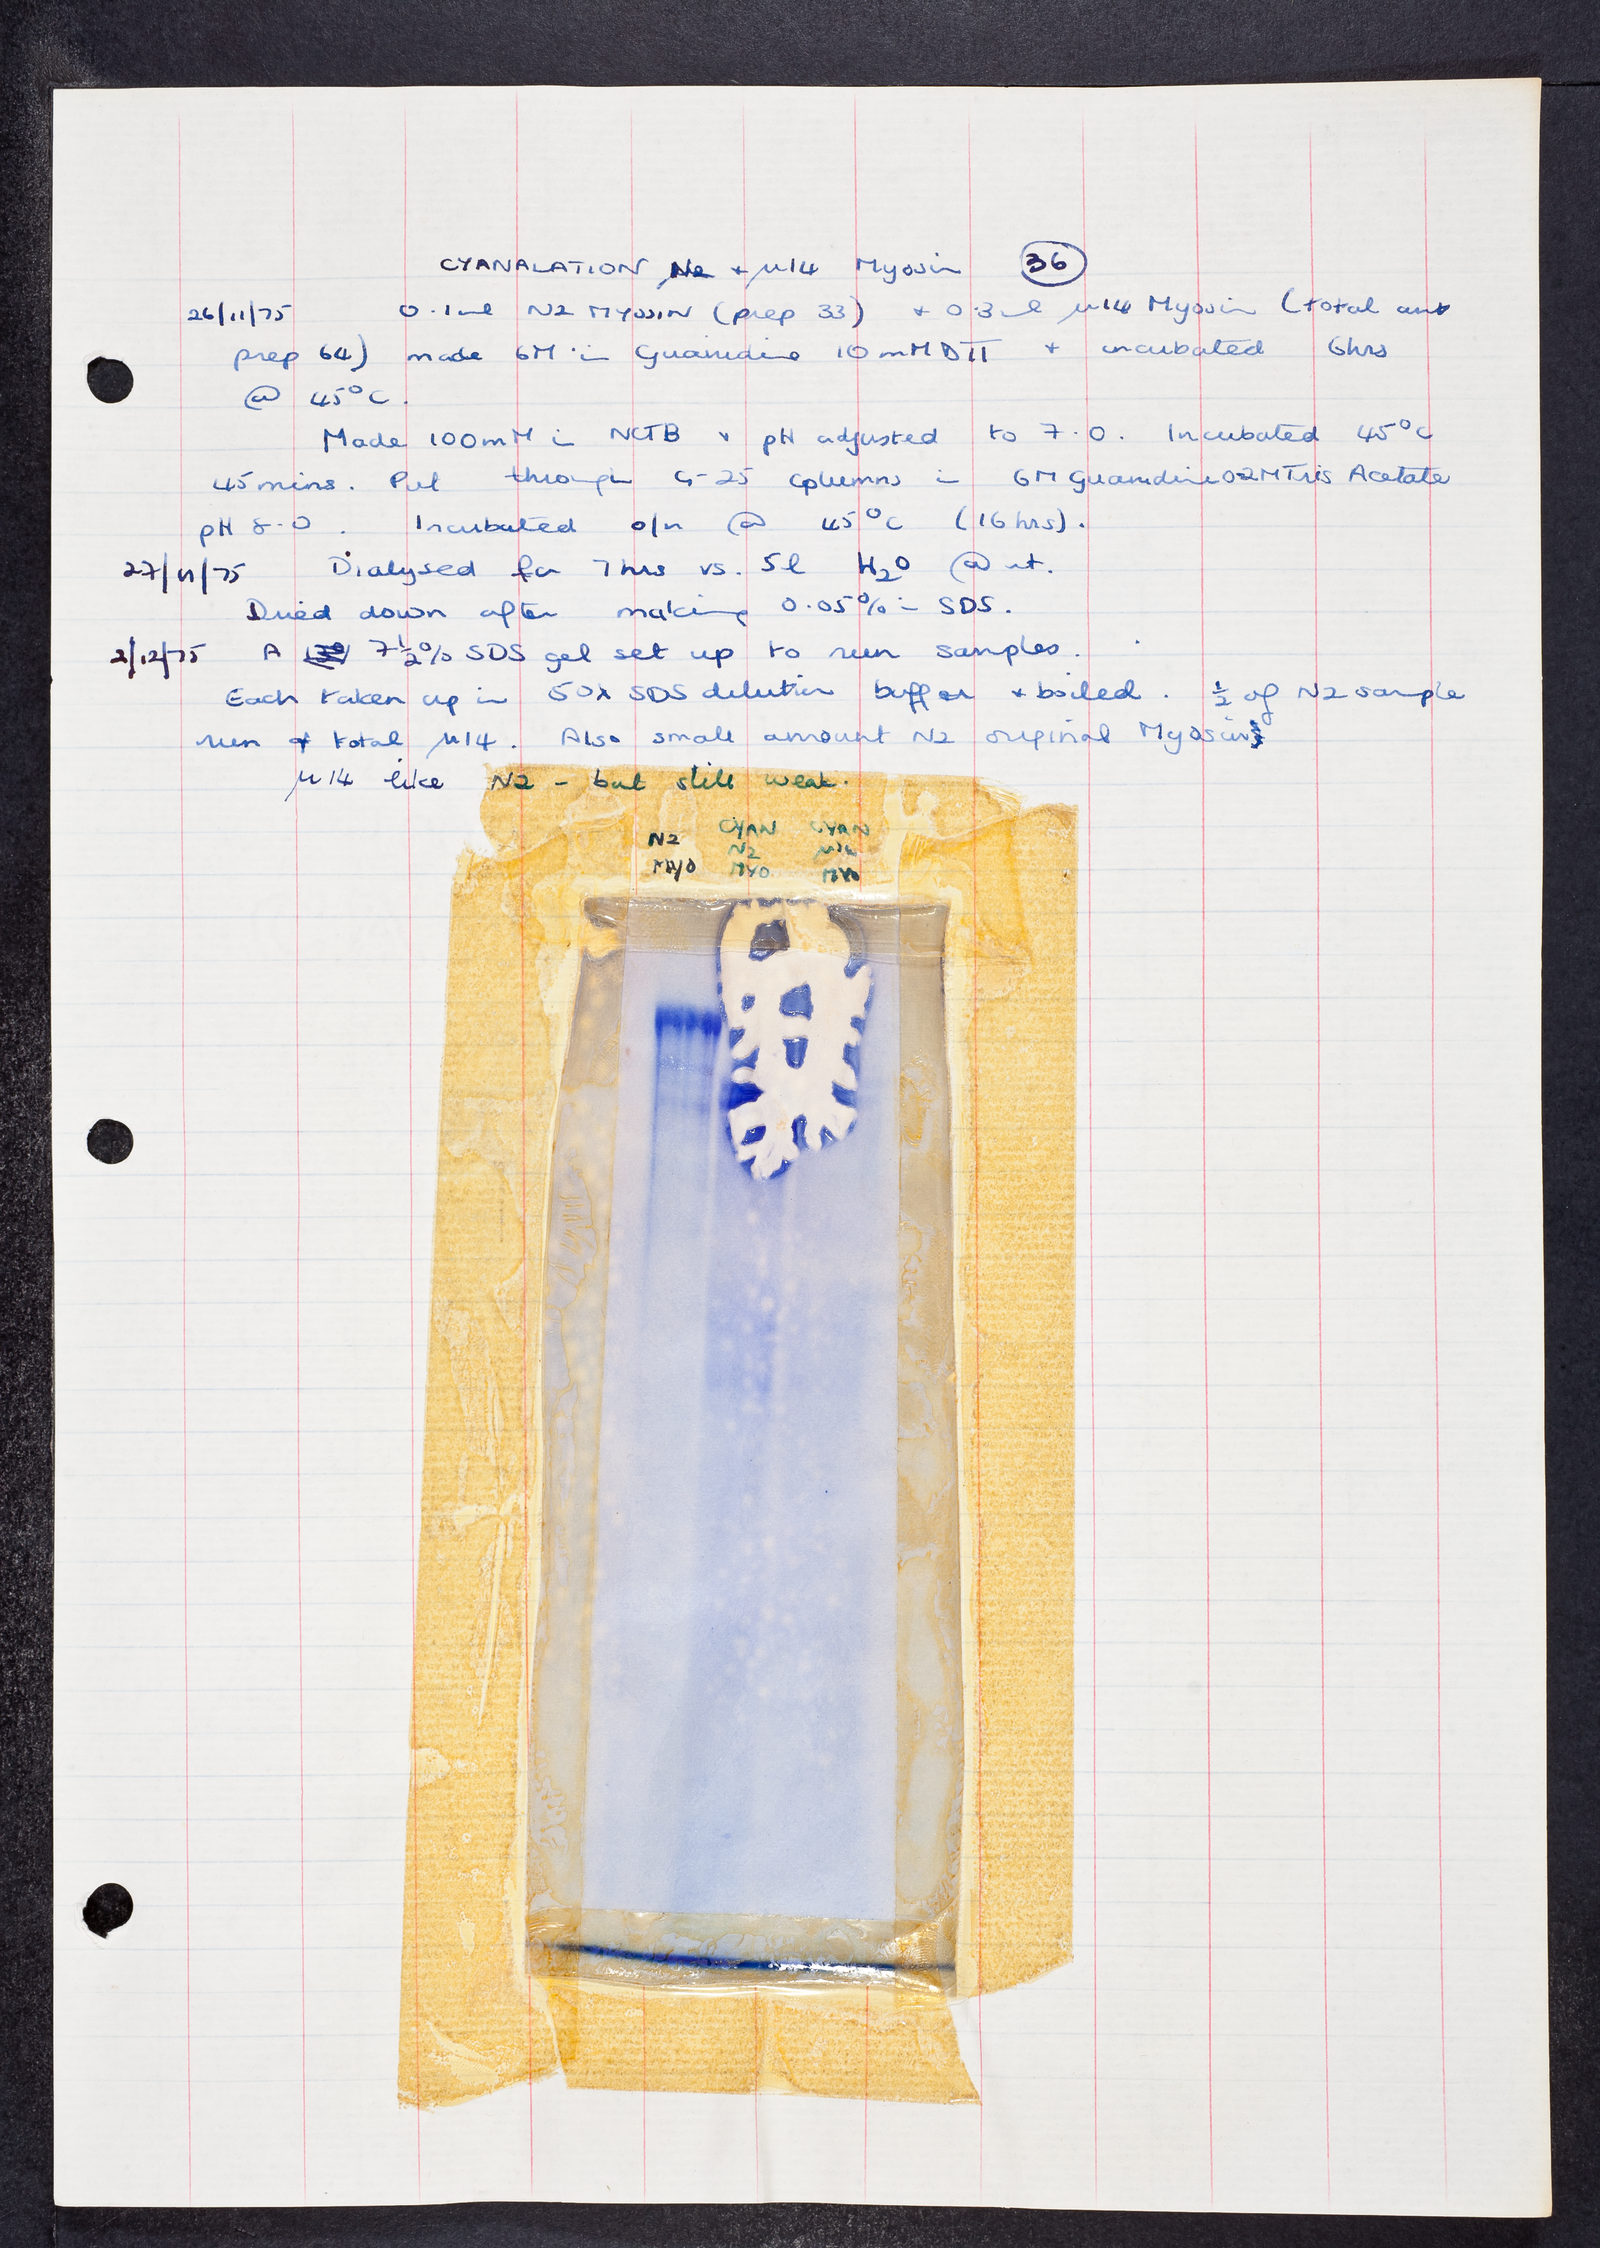 CYANALATION N2 + µ14 Myosin 36
26/11/75 0.1ml N2 MYOSIN (prep 33) + 0.3ml µ14 Myosin (total amt
prep 64) made 6M in Guanidine 10mM DTT + incubated 6hrs
@ 45°C.
Made 100mM in NCTB + pH adjusted to 7.0. Incubated 45°C
45mins. Put through G-25 columns in 6M Guanidine 0.2M Tris Acetate
pH 8.0. Incubated o/n @ 45°C (16hrs).
27/11/75 Dialysed for 7hrs vs. 5l H2O @ rt.
Dried down after making 0.05% in SDS.
2/12/75 A 7½% SDS gel set up to run samples.
Each taken up in 50λ SDS dilution buffer + boiled. ½ of N2 sample
run + total µ14. Also small amount N2 original Myosin
µ14 like N2 - but still weak.
N2 CYAN CYAN
N2 µ14
MYO MYO MYO